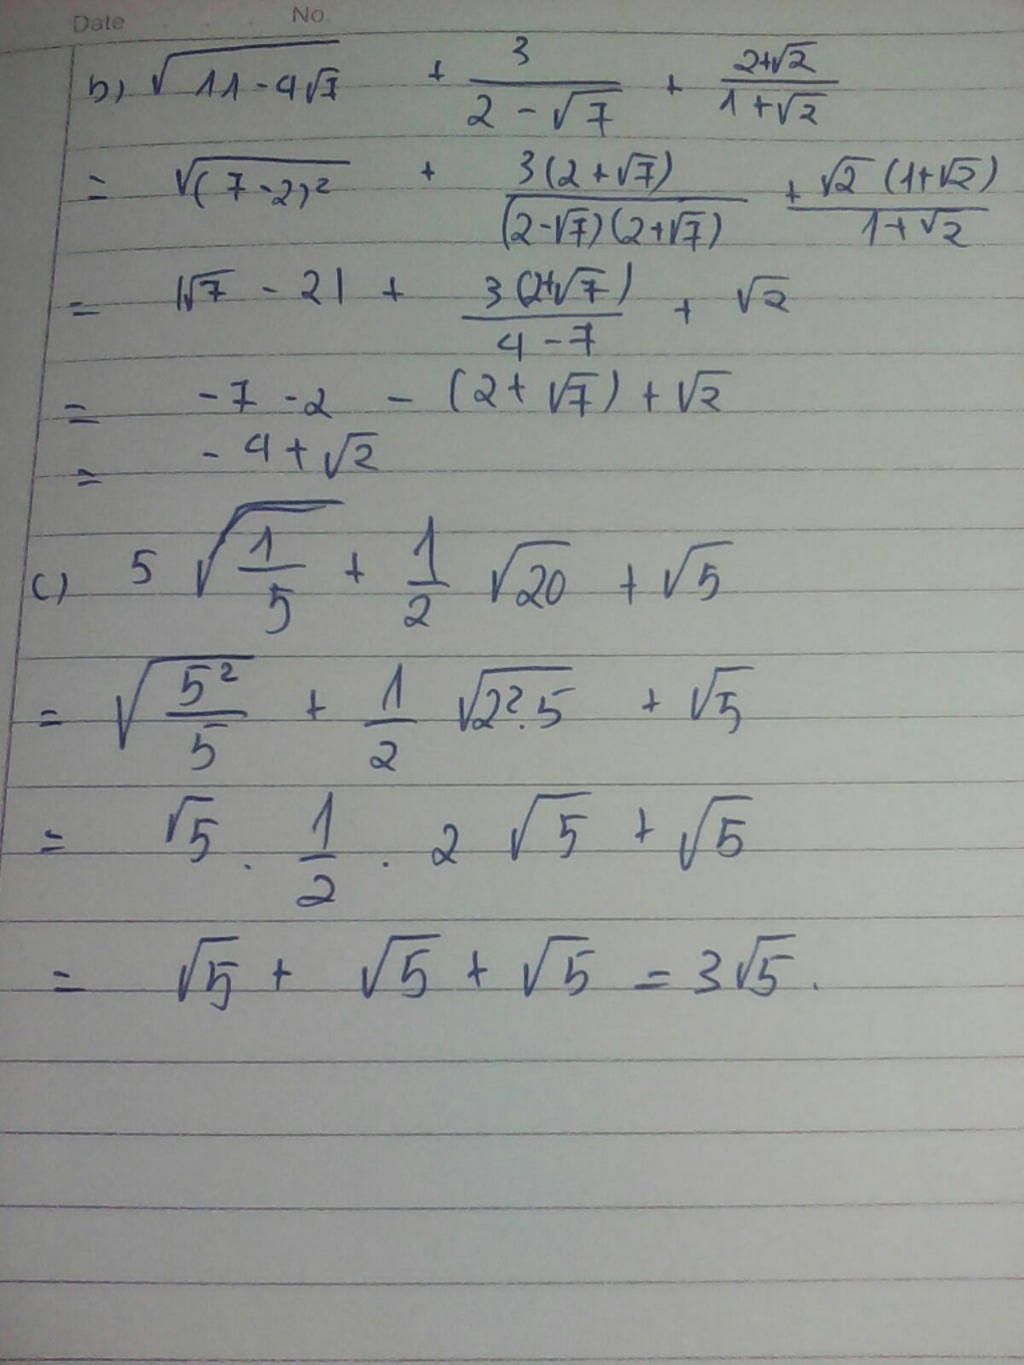 Date No.
b) √(11-4√7) + 3/(2-√7) + (2+√2)/(1+√2)
= √((7-2)²) + 3(2+√7)/((2-√7)(2+√7)) + √2(1+√2)/(1+√2)
= |√7 - 2| + 3(2+√7)/(4-7) + √2
= -7 -2 - (2+√7) + √2
= - 4 + √2
c) 5√(1/5) + 1/2 √20 + √5
= √(5²/5) + 1/2 √(2².5) + √5
= √5 . 1/2 . 2√5 + √5
= √5 + √5 + √5 = 3√5.